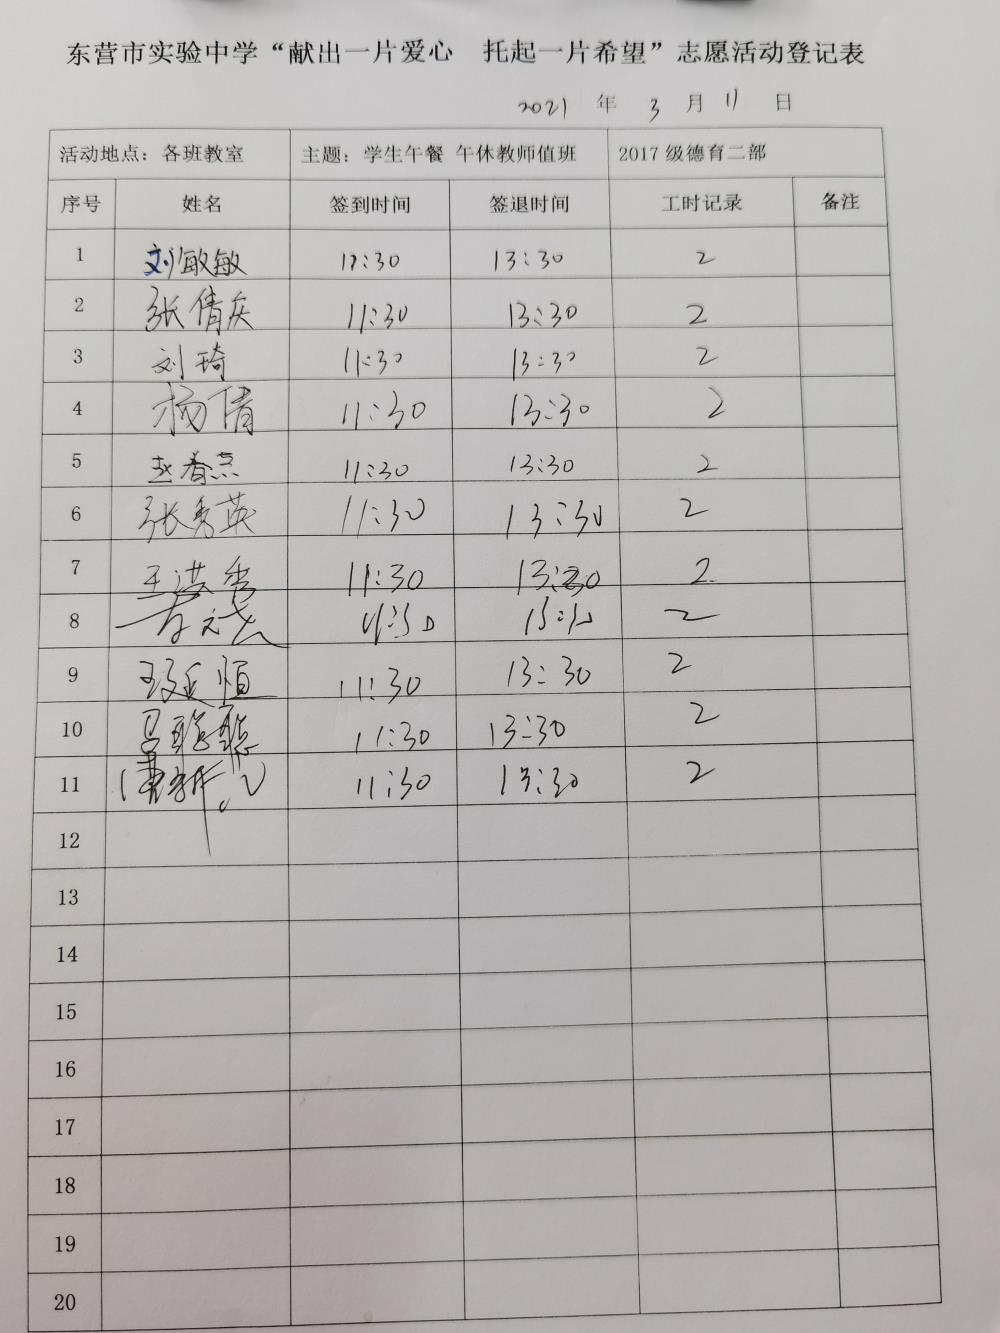 东营市实验中学“献出一片爱心 托起一片希望”志愿活动登记表
2021 年 3 月 11 日
活动地点：各班教室 主题：学生午餐 午休教师值班 2017 级德育二部
序号 姓名 签到时间 签退时间 工时记录 备注
1 刘敏敏 11:30 13:30 2
2 张倩 11:30 13:30 2
3 刘琦 11:30 13:30 2
4 杨倩 11:30 13:30 2
5 11:30 13:30 2
6 张秀英 11:30 13:30 2
7 王洪秀 11:30 13:30 2
8 11:30 13:30 2
9 11:30 13:30 2
10 马聪聪 11:30 13:30 2
11 11:30 13:30 2
12
13
14
15
16
17
18
19
20